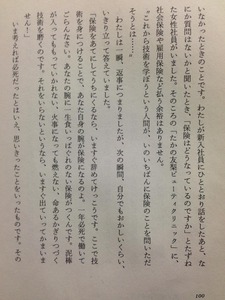 いなかったときのことです。わたしが新入社員にひととおり話をしたあと、な
にか質問はないかと聞いたとき、「保険は、どうなっているのですか」とたずね
た女性社員がいました。そのころの「たかの友梨ビューティクリニック」に、
社会保険や雇用保険など払う余裕はありません。
"これから技術を学ぼうという人間が、いのいちばんに保険のことを問いただ
そうとは……"
わたしは一瞬、返事につまりましたが、次の瞬間、自分でもおかしいくらい、
いきり立って答えていました。
「保険をあてにしてうちにくるなら、いますぐ辞めてけっこうです。ここで技
術を身につけることで、あなた自身の腕が保険になるのよ。一年必死で働いて
ごらんなさい。あなたの腕に一生食いっぱぐれのない保険がつくんです。泥棒
が入ってももっていかれない、火事になっても燃えない、命あるかぎりつづく
技術を磨くのです。それをいらないというなら、いますぐ出ていってかまいま
せん！」
いまいえば必死だったとはいえ、思いきったことをいったものです。その
100